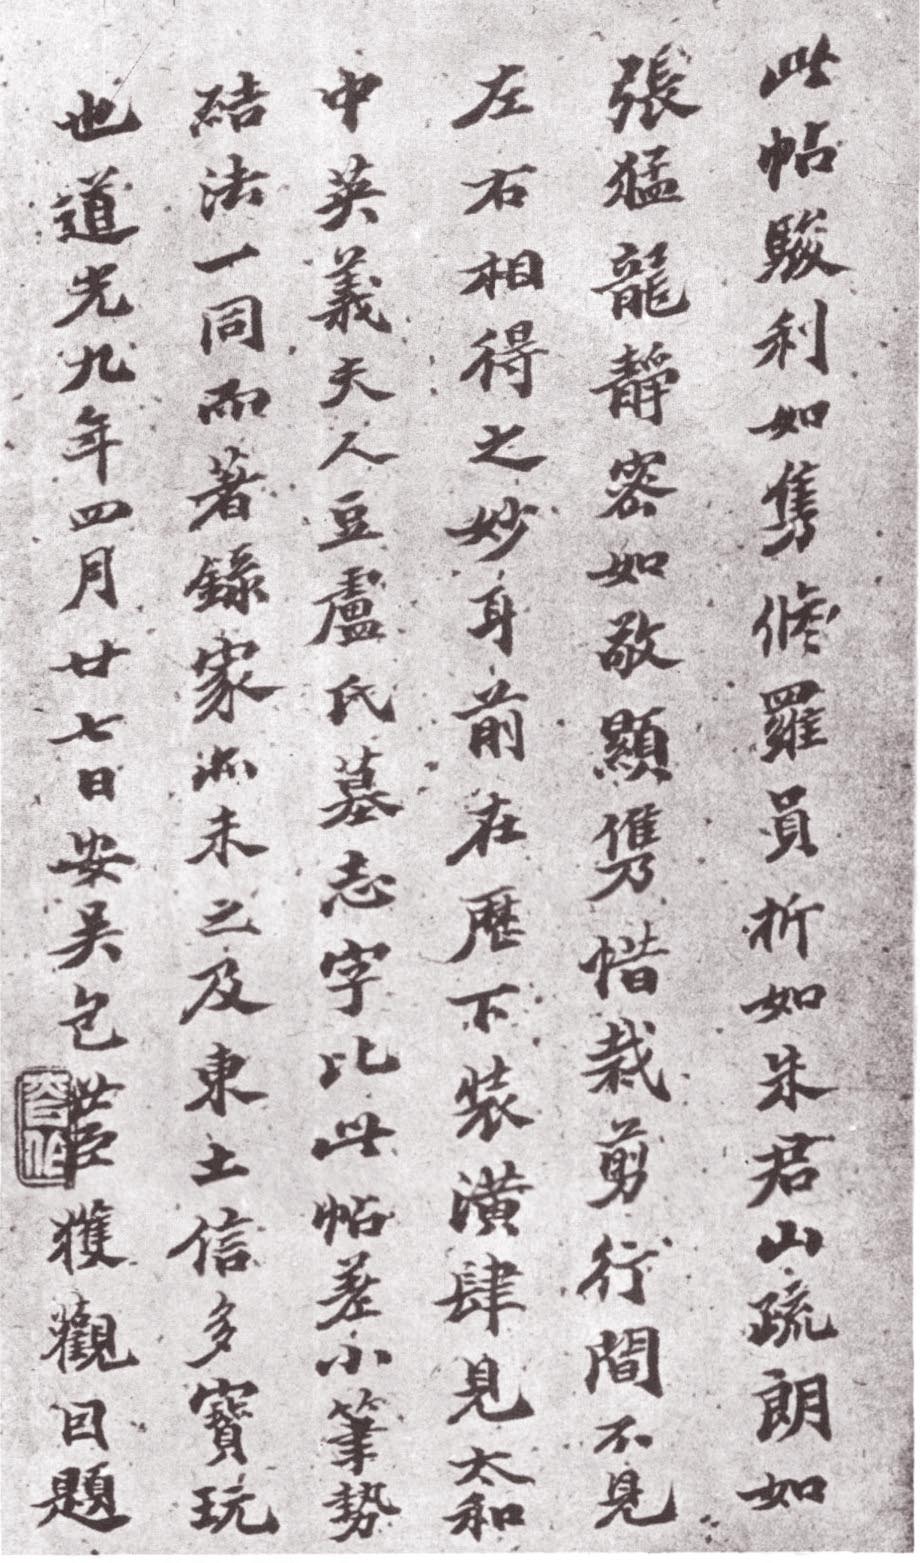 此帖駿利如雋脩羅員折如朱君山疏朗如
張猛龍靜密如敬顯儁惜裁剪行間不見
左右相得之妙身前在歷下裝潢肆見太和
中英義夫人豆盧氏墓志字比此帖差小筆勢
結法一同而著錄家亦未之及東土信多寶玩
也道光九年四月廿七日安吳包世臣獲觀因題